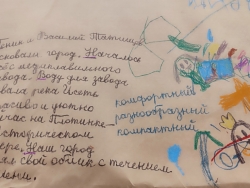 и Василий Татищев
основали город. Началось
медеплавильного
завода. Воду для завода
давала река Исеть
красиво и уютно
сейчас на Плотинке
историческом
Наш город
свой облик с течением
времени.
комфортный
разнообразный
компактный